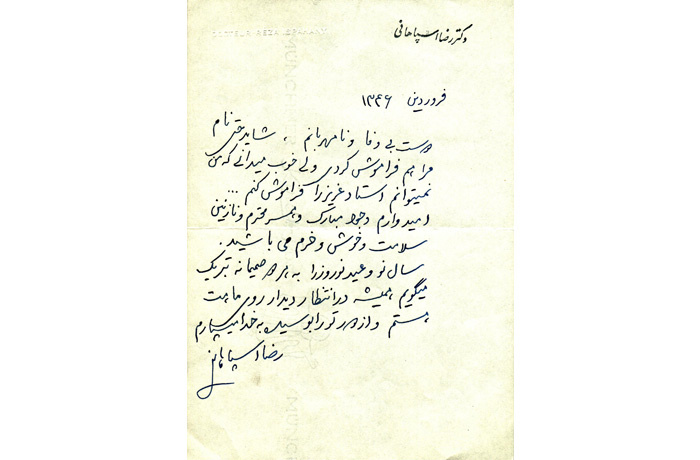 دکتر رضا اسپاهانی
فروردین ۱۳۴۶
دوست بی وفا و نامهربانم ، شاید حتی نام
مرا هم فراموش کردی ولی خوب میدانی که من
نمیتوانم استاد عزیز را فراموش کنم ...
امیدوارم وجود مبارک و همسر محترم و نازنینی
سلامت و خوش و خرم می باشید .
سال نو و عید نوروز را به هر دو صمیمانه تبریک
میگویم همیشه در انتظار دیدار روی ماهت
هستم و از دور تو را بوسیده به خدا میسپارم
رضا اسپاهانی